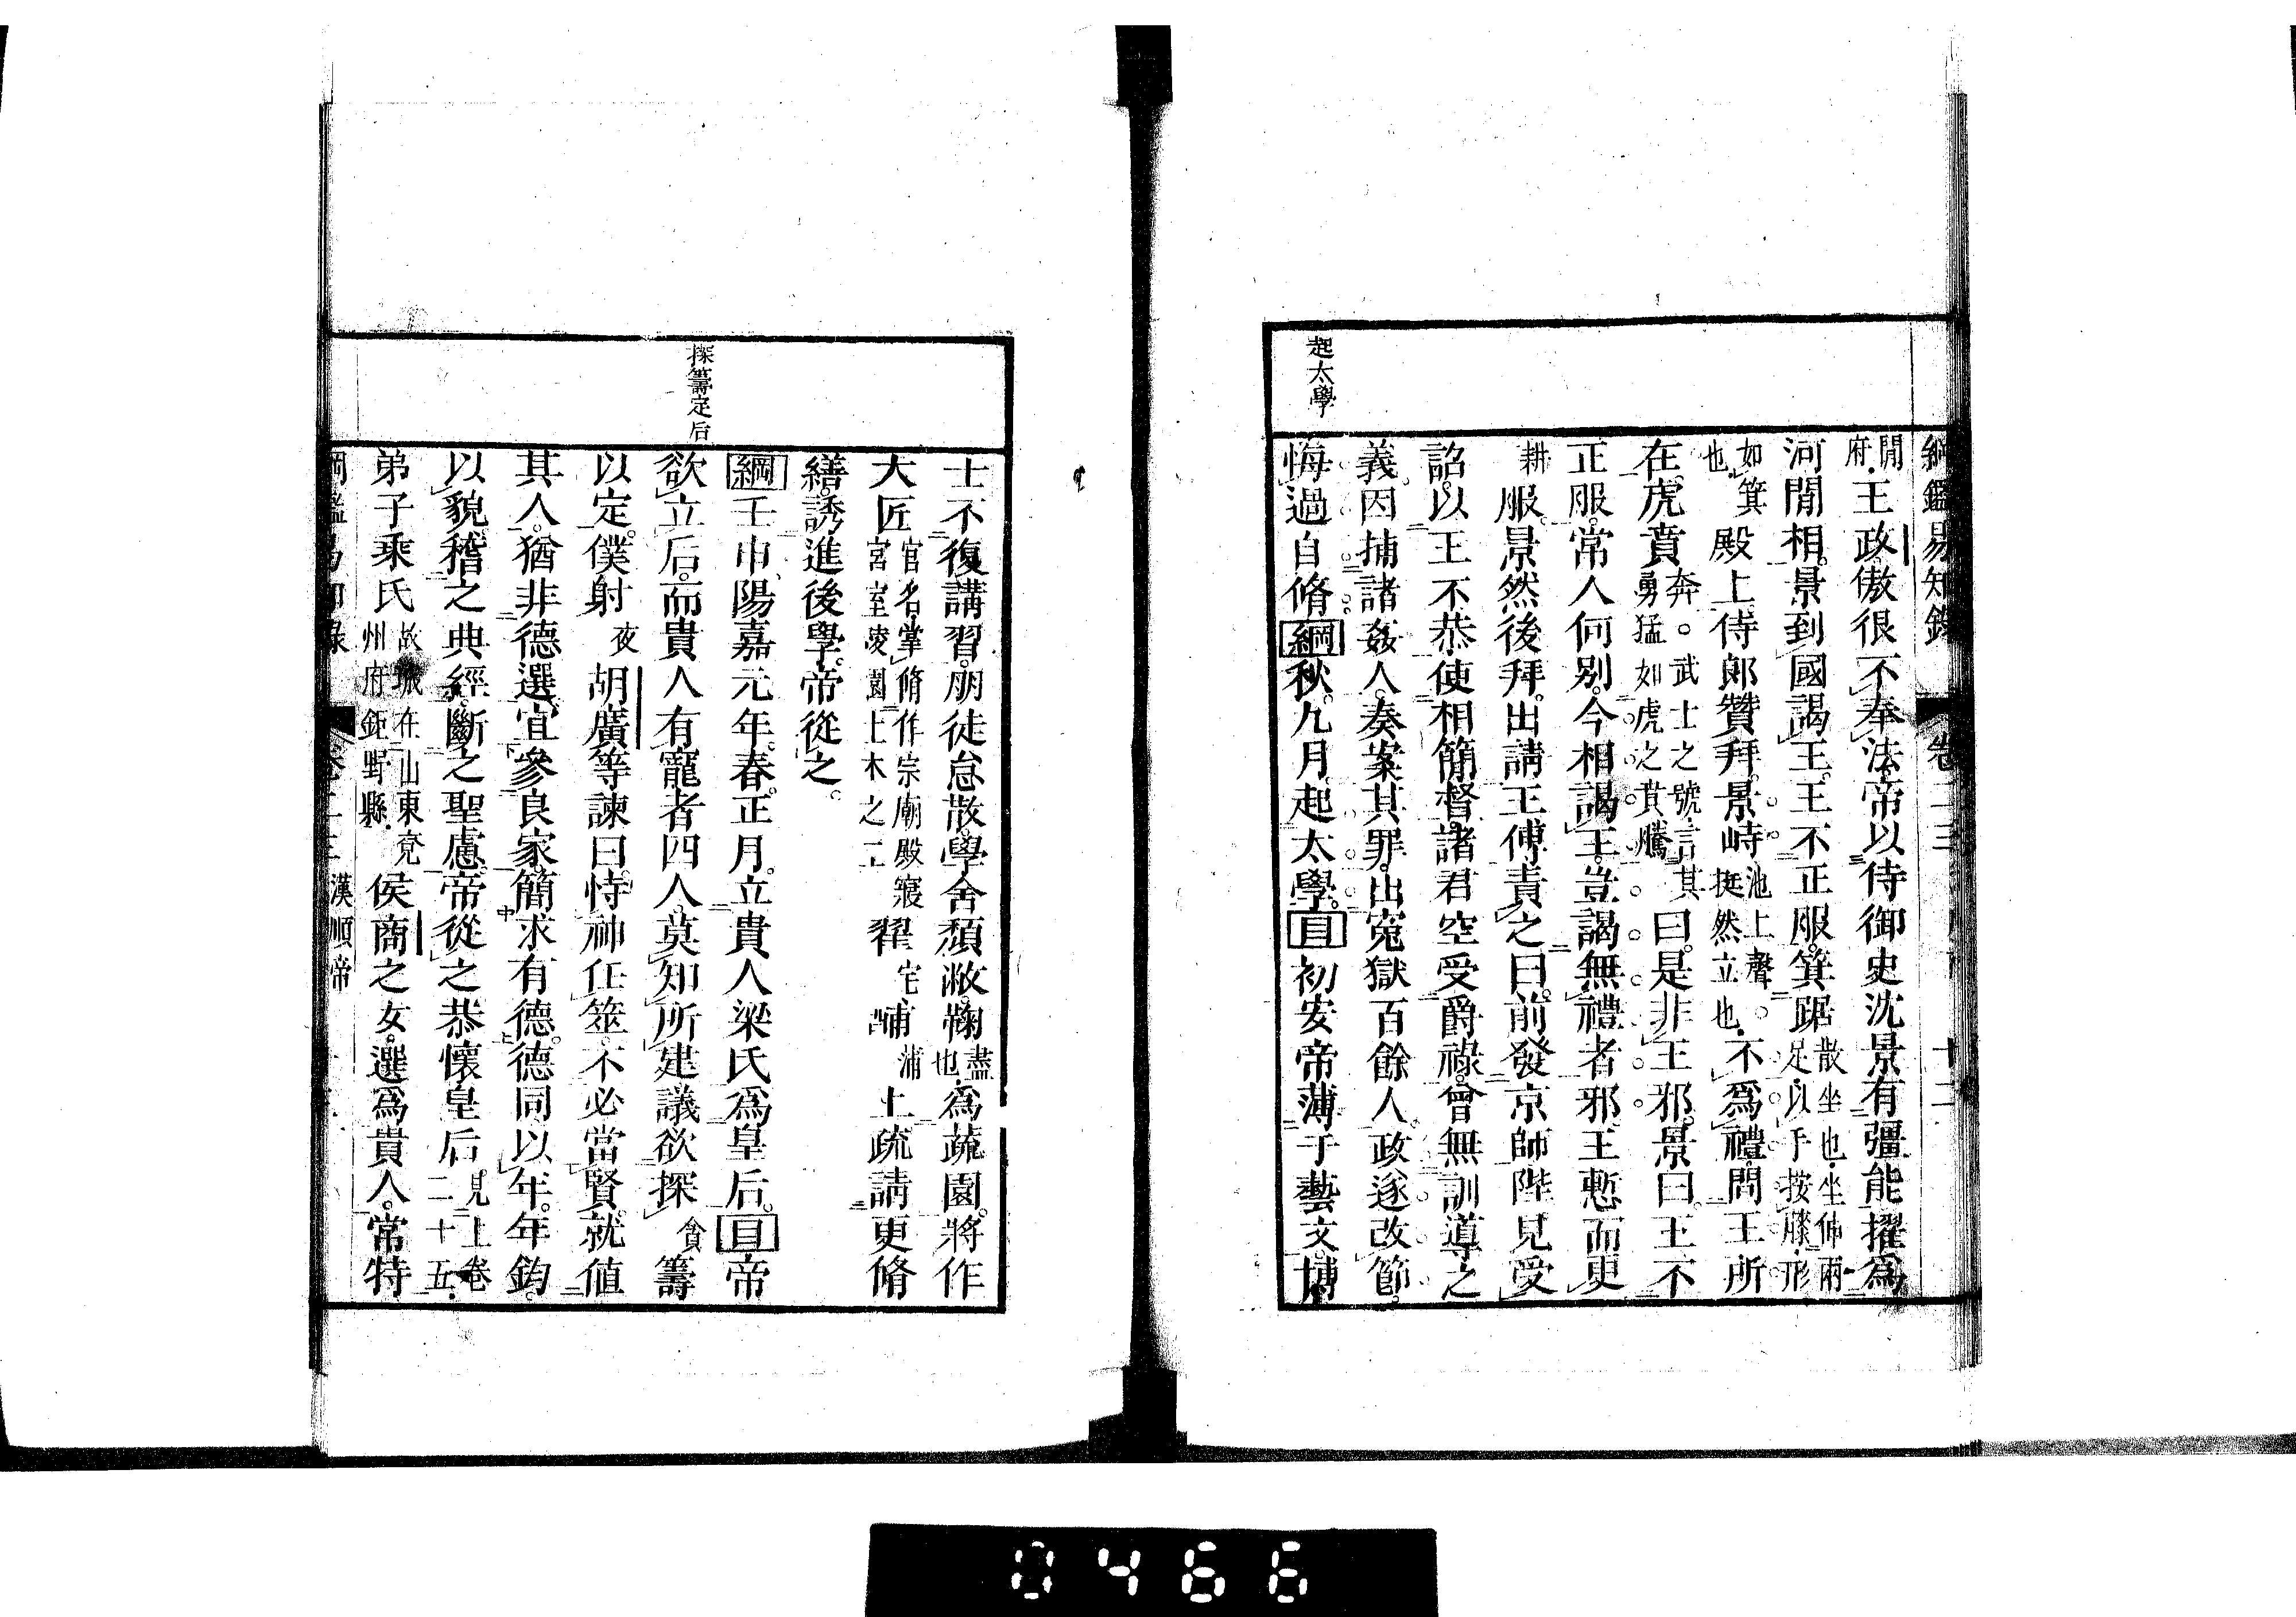 綱鑑易知錄 卷二三 十二
起太學
閒府王政傲很不奉法帝以侍御史沈景有彊能擢爲
河閒相景到國謁王王不正服箕踞散坐也坐伸兩足以手按膝形
如箕也殿上侍郞贊拜景峙池上聲。挺然立也不爲禮問王所
在虎賁奔。武士之號言其勇猛如虎之賁騰曰是非王邪景曰王不
正服常人何別今相謁王豈謁無禮者邪王慙而更
耕服景然後拜出請王傅責之曰前發京師陛見受
詔以王不恭使相簡督諸君空受爵祿曾無訓導之
義因捕諸姦人奏案其罪出寃獄百餘人政遂改節。
悔過自脩綱秋九月起太學目初安帝薄于藝文博
探籌定后
士不復講習朋徒怠散學舍頹敝鞠盡也爲蔬園將作
大匠官名掌脩作宗廟殿寢宮室陵園土木之工翟宅酺蒲上疏請更脩
繕誘進後學帝從之。
綱壬申陽嘉元年春正月立貴人梁氏爲皇后。目帝
欲立后而貴人有寵者四人莫知所建議欲探貪籌
以定僕射夜胡廣等諫曰恃神任筮不必當賢就値
其人猶非德選宜參良家簡求有德德同以年年鈞。
以貌稽之典經斷之聖慮帝從之恭懷皇后見上卷二十五
弟子乘氏故城在山東兗州府鉅野縣侯商之女選爲貴人常特
漢順帝